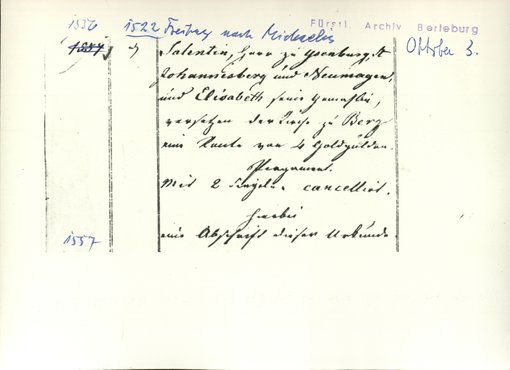 1556 1522 Freitag nach Michaelis
Fürstl. Archiv Berleburg
1557 7) Salentin, Herr zu Isenburg,
Oktober 3.
Johannesberg und Neumagen,
und Elisabeth seine Gemahlin,
versetzen der Kirche zu Berg
eine Rente von 4 Goldgulden.
Pergament.
Mit 2 Siegeln cancellirt.
Hierbei
1557
eine Abschrift dieser Urkunde.